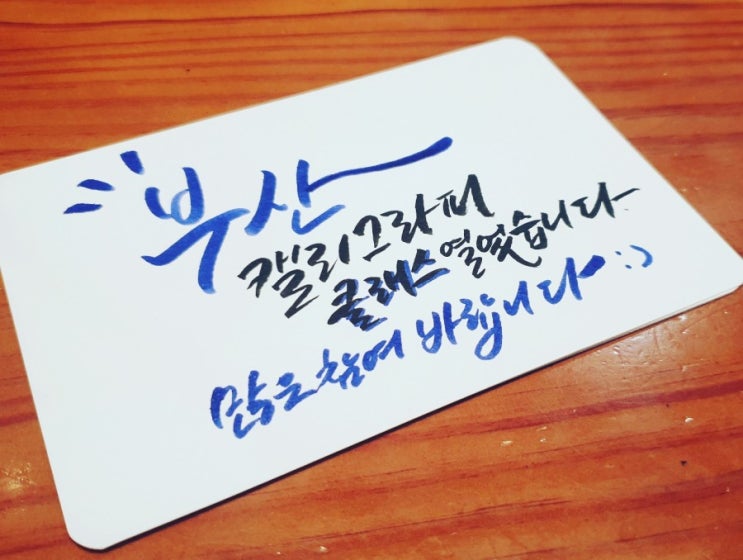 부산
캘리그라피
클래스 열었습니다
많은 참여 바랍니다 :)